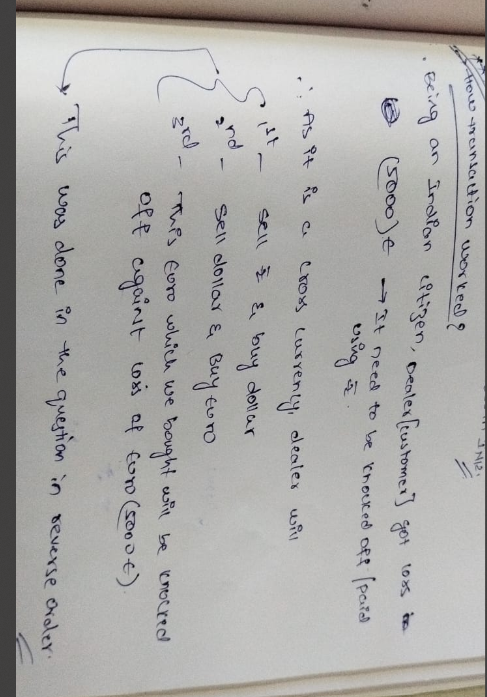 INR.
→ How transaction worked?
• Being an Indian citizen, Dealer[customer] got loss in
(5000) € → It need to be knocked off / paid
using ₹.
∴ As it is a cross currency, dealer will
1st - sell ₹ & buy dollar
2nd - Sell dollar & Buy Euro
3rd - This Euro which we bought will be knocked
off againt loss of Euro (5000 €)
→ This was done in the question in reverse order.